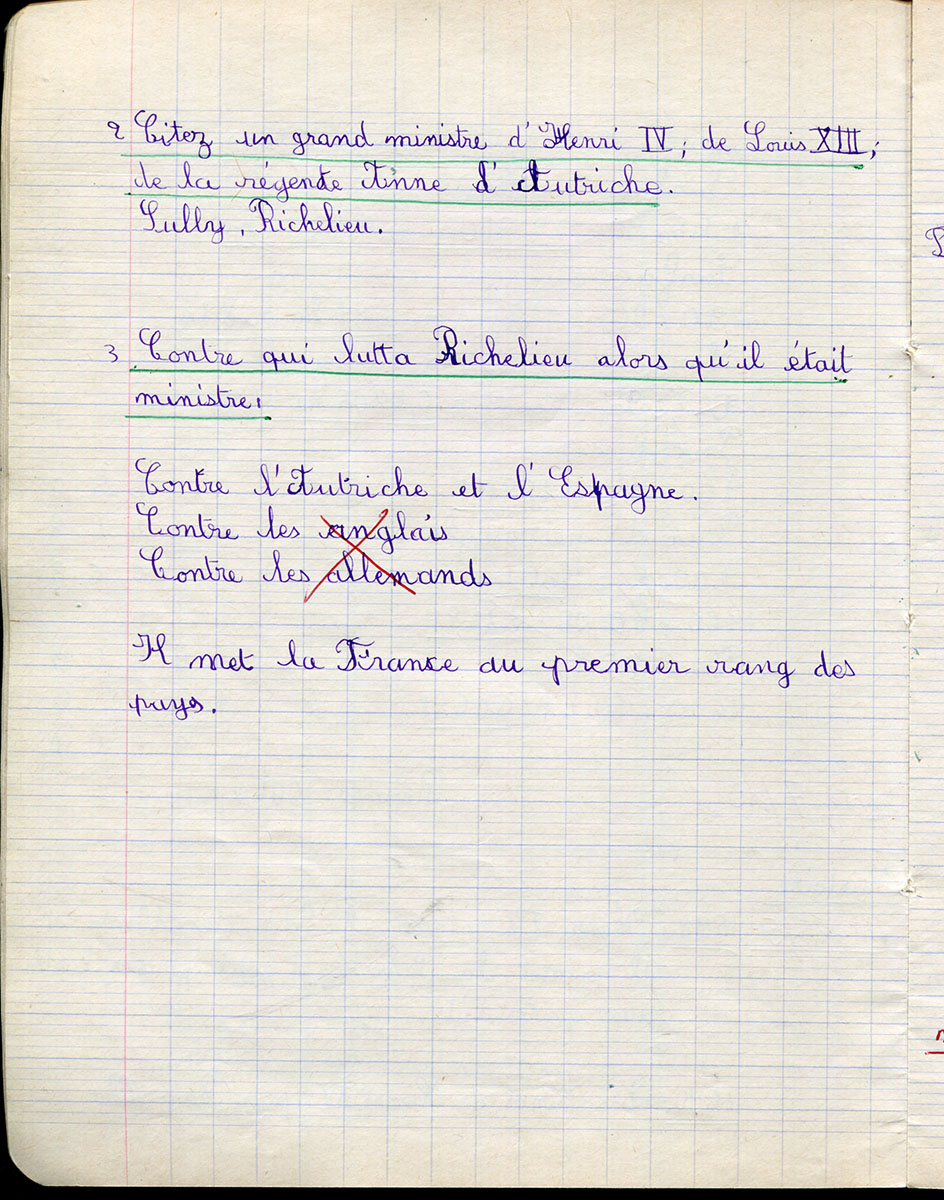 2 Citez un grand ministre d'Henri IV; de Louis XIII;
de la régente Anne d'Autriche.
Sully, Richelieu.
3 Contre qui lutta Richelieu alors qu'il était
ministre.
Contre l'Autriche et l'Espagne.
Contre les anglais
Contre les allemands
Il met la France au premier rang des
pays.